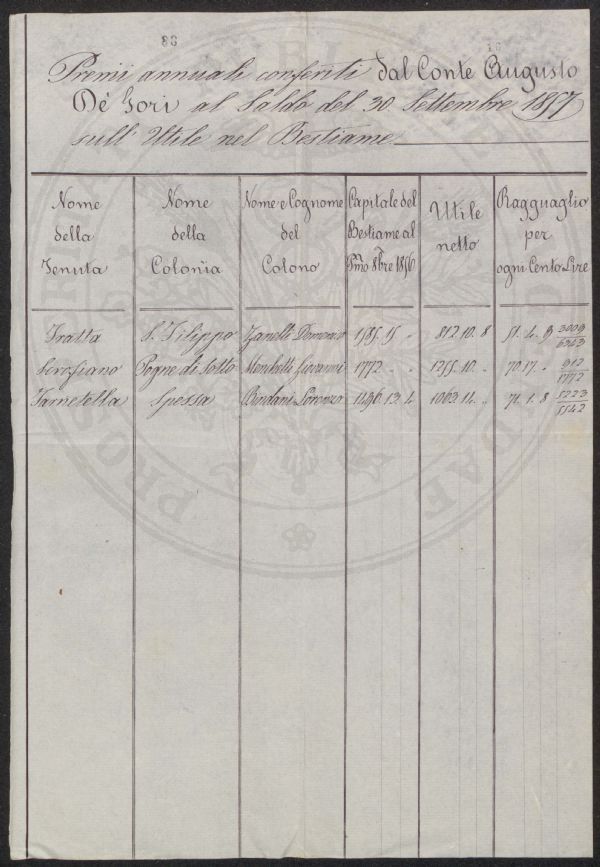 83 16
Premi annuali conferiti dal Conte Augusto
De' Gori al Saldo del 30 Settembre 1857
sull' Utile nel Bestiame
Nome della Tenuta | Nome della Colonia | Nome e Cognome del Colono | Capitale del Bestiame al Pmo 8bre 1856 | Utile netto | Ragguaglio per ogni Cento Lire
Fratta | S. Filippo | Zanelli Domenico | 1585. 15. " | 812. 10. 8 | 51. 4. 9
Scrofiano | Pogne di Sotto | Menchetti Giovanni | 1772. " " | 1255. 10. " | 70. 17. " 912/1772
Farnetella | Spessa | Bindani Lorenzo | 1496. 13. 4 | 1063. 14. " | 71. 1. 8 5223/5542